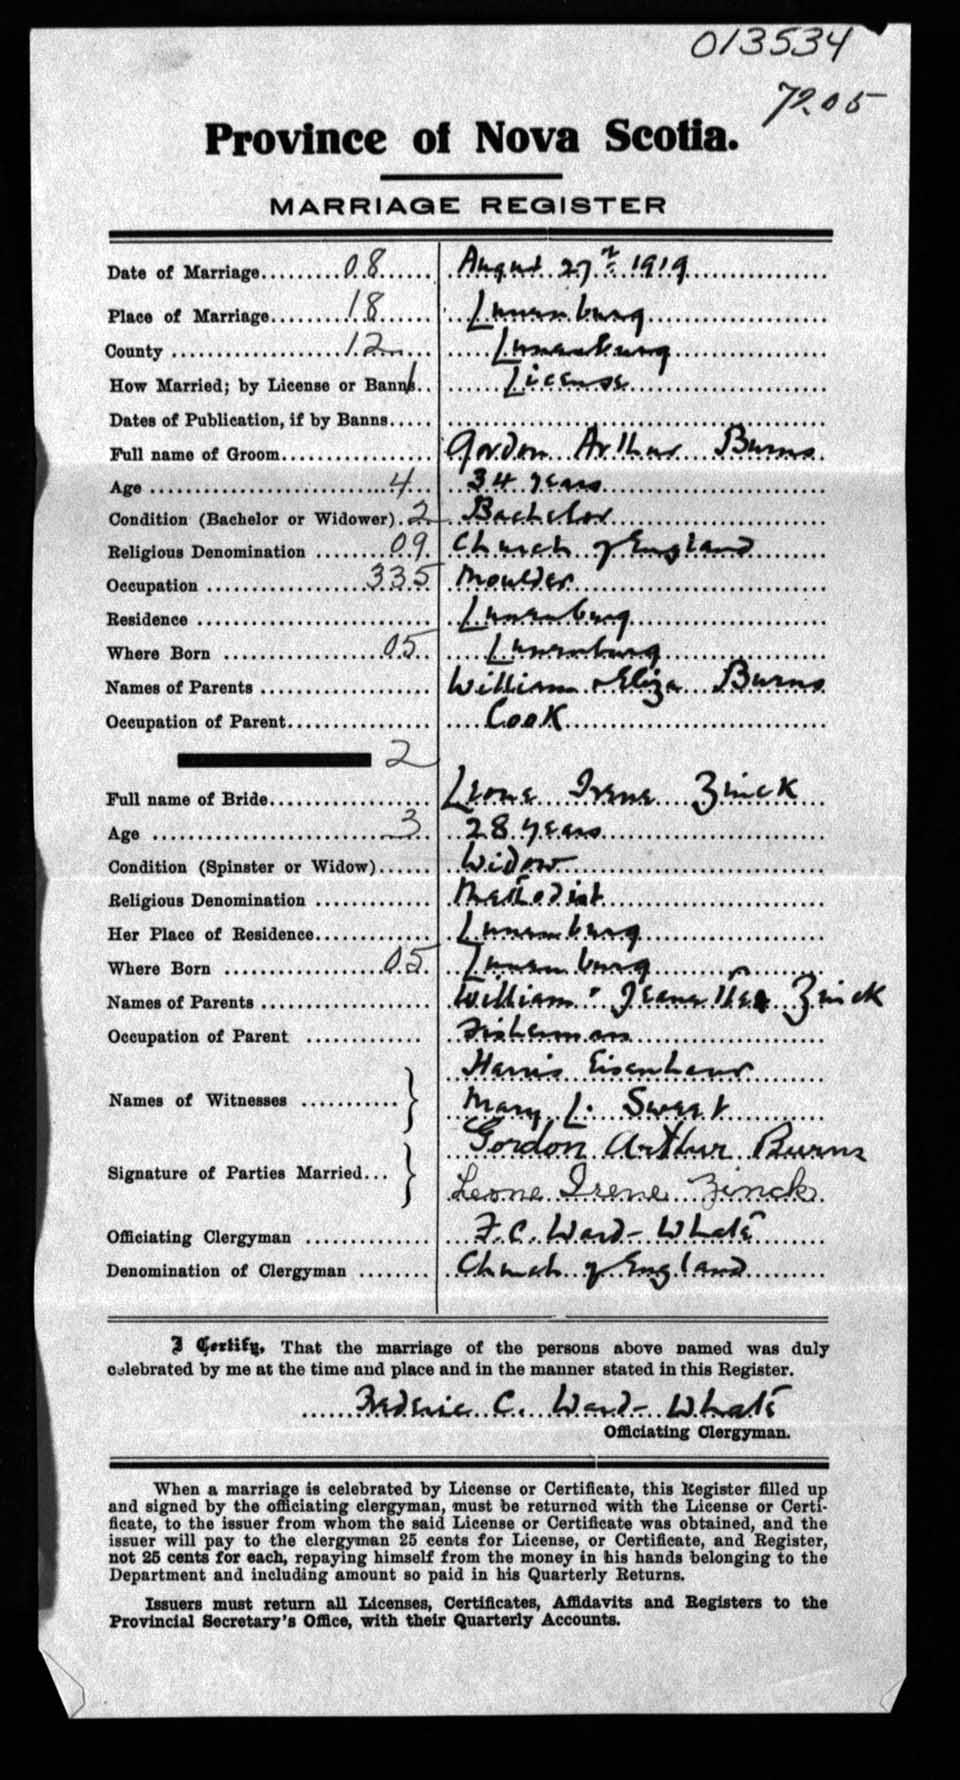 013534
7205
Province of Nova Scotia.
MARRIAGE REGISTER
Date of Marriage.........08...... August 27th 1919
Place of Marriage........18...... Lunenburg
County ..................12...... Lunenburg
How Married; by License or Banns.. 1 License
Dates of Publication, if by Banns.....
Full name of Groom............... Gordon Arthur Burns
Age .........................4... 34 years
Condition (Bachelor or Widower).2 Bachelor
Religious Denomination .......09. Church of England
Occupation .................335 Moulder
Residence ....................... Lunenburg
Where Born .................05.. Lunenburg
Names of Parents ................ William & Eliza Burns
Occupation of Parent............. Cook
2
Full name of Bride................ Leone Irene Zinck
Age ..........................3.. 28 years
Condition (Spinster or Widow)...... Widow
Religious Denomination ............ Methodist
Her Place of Residence............. Lunenburg
Where Born .................05. Lunenburg
Names of Parents ................ William & Jeanette Zinck
Occupation of Parent ............ Fisherman
Names of Witnesses ........... Harris Eisenhaur
Mary L. Sweet
Signature of Parties Married... Gordon Arthur Burns
Leone Irene Zinck
Officiating Clergyman ............. F. C. Ward-Whate
Denomination of Clergyman ........ Church of England
I Certify, That the marriage of the persons above named was duly
celebrated by me at the time and place and in the manner stated in this Register.
Frederic C. Ward-Whate
Officiating Clergyman.
When a marriage is celebrated by License or Certificate, this Register filled up
and signed by the officiating clergyman, must be returned with the License or Certi-
ficate, to the issuer from whom the said License or Certificate was obtained, and the
issuer will pay to the clergyman 25 cents for License, or Certificate, and Register,
not 25 cents for each, repaying himself from the money in his hands belonging to the
Department and including amount so paid in his Quarterly Returns.
Issuers must return all Licenses, Certificates, Affidavits and Registers to the
Provincial Secretary's Office, with their Quarterly Accounts.